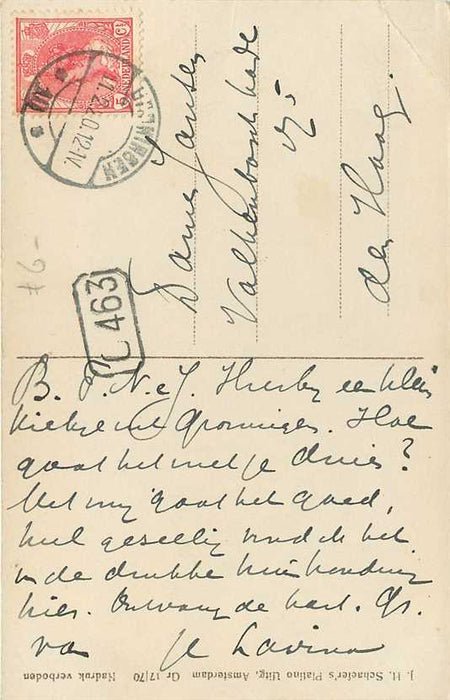 Dames Jansen
Valkenboschkade
den Haag.
GRONINGEN
12.IV
C 463
B. P. N. e J. Hierby een klein
kiekje uit Groningen. Hoe
gaat het met je dnies?
Met my gaat het goed,
heel gesellig vind ik het
in de drukke huishouding
hier. Ontvang de hart. Gr.
van je Lavina
J. H. Schaefer's Platino Uitg. Amsterdam Gr 17/70 Nadruk verboden